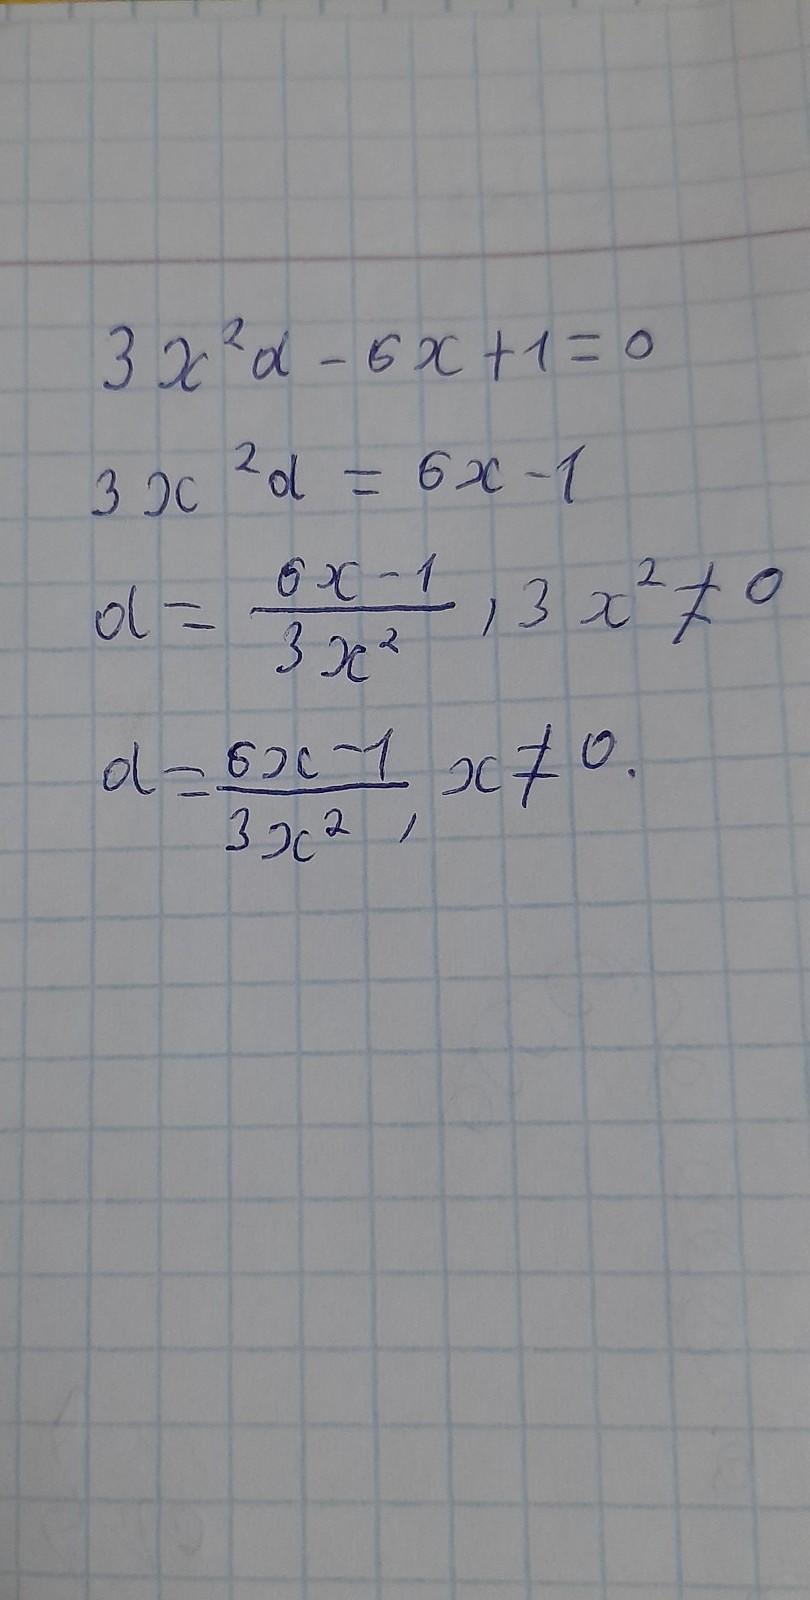 3x²d - 6x + 1 = 0
3x²d = 6x - 1
d = \frac{6x - 1}{3x²}, 3x² ≠ 0
d = \frac{6x - 1}{3x²}, x ≠ 0.